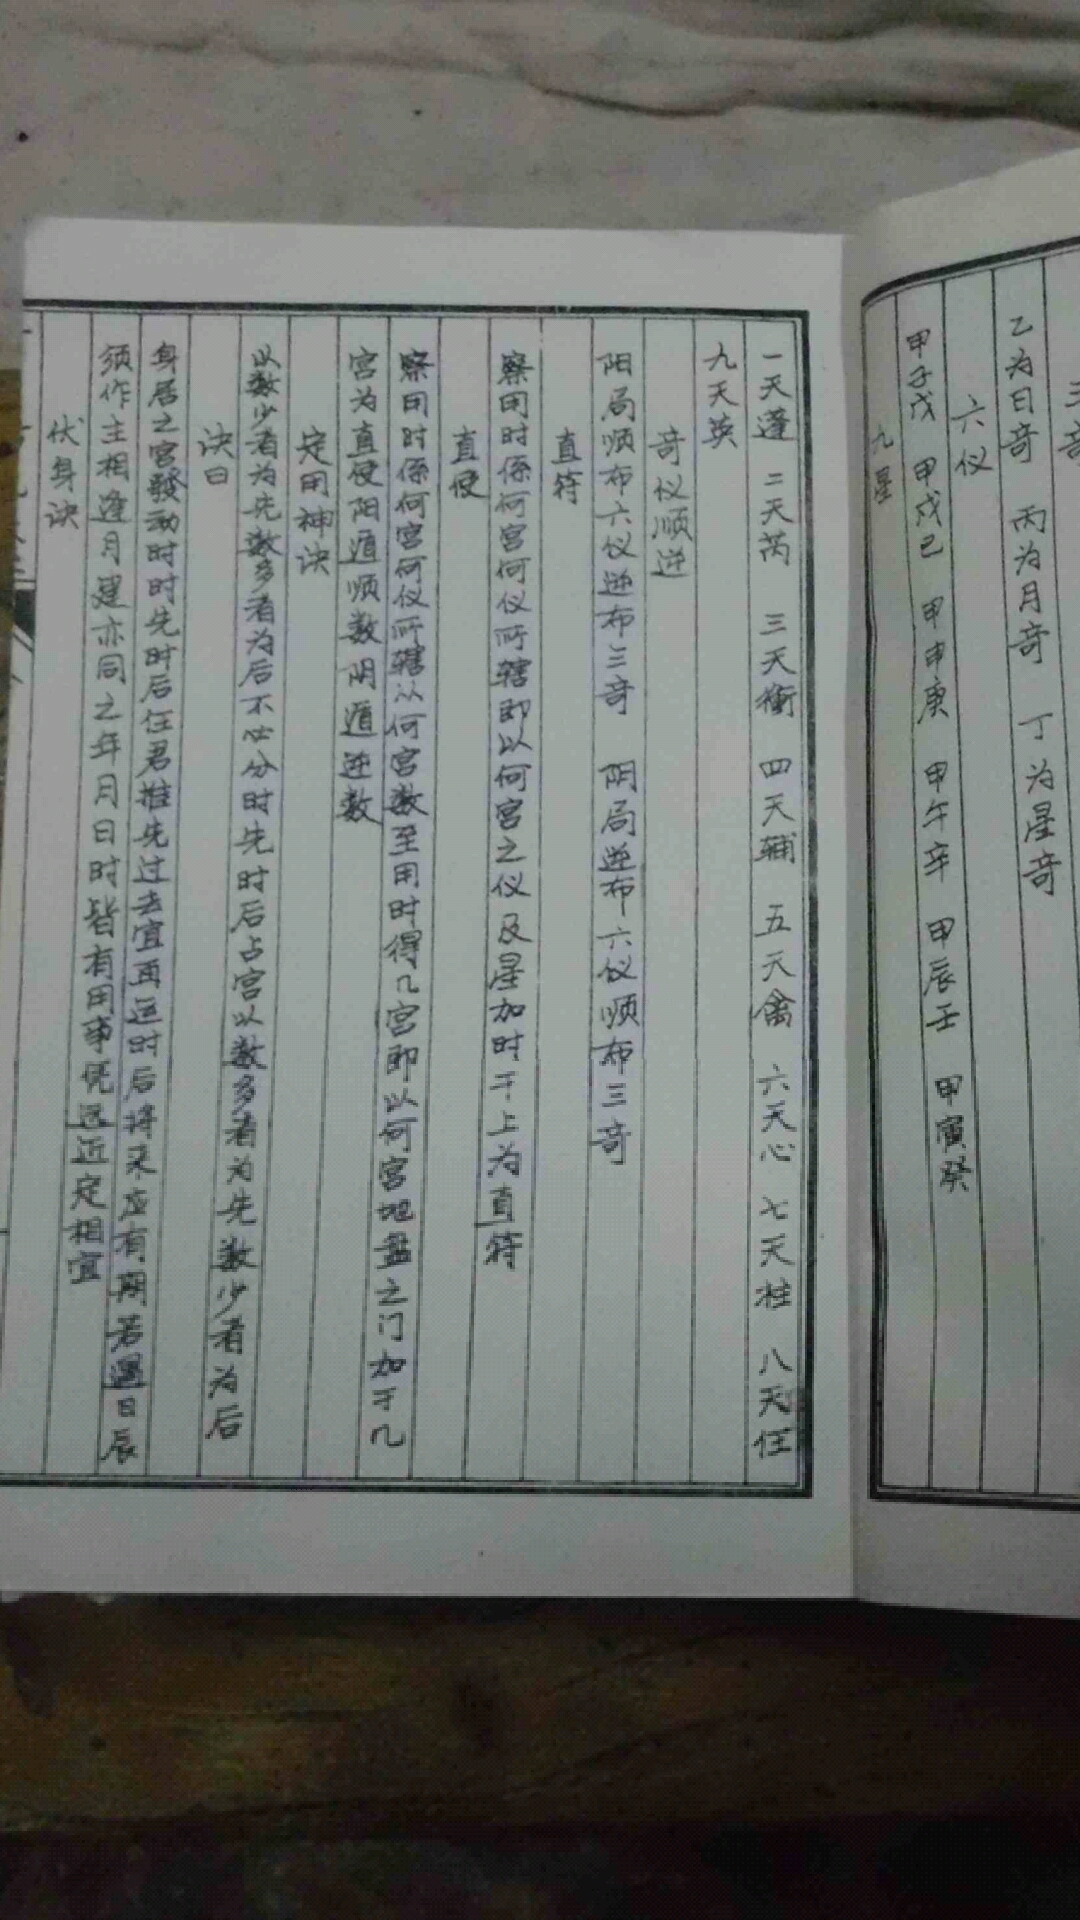 三奇
乙为日奇 丙为月奇 丁为星奇
六仪
甲子戊 甲戌己 甲申庚 甲午辛 甲辰壬 甲寅癸
九星
一天蓬 二天芮 三天衝 四天辅 五天禽 六天心 七天柱 八天任
九天英
奇仪顺逆
阳局顺布六仪逆布三奇 阴局逆布六仪顺布三奇
直符
察用时係何宫何仪所辖即以何宫之仪及星加时干上为直符
直使
察用时係何宫何仪所辖以何宫数至用时得几宫即以何宫地盘之门加于几
宫为直使阳遁顺数阴遁逆数
定用神诀
以数少者为先数多者为后不必分时先时后占宫以数多者为先数少者为后
诀曰
身居之宫發动时时先时后任君推先过去宜再运时后将来应有期若遇日辰
须作主相逢月建亦同之年月日时皆有用事凭远近定相宜
伏身诀